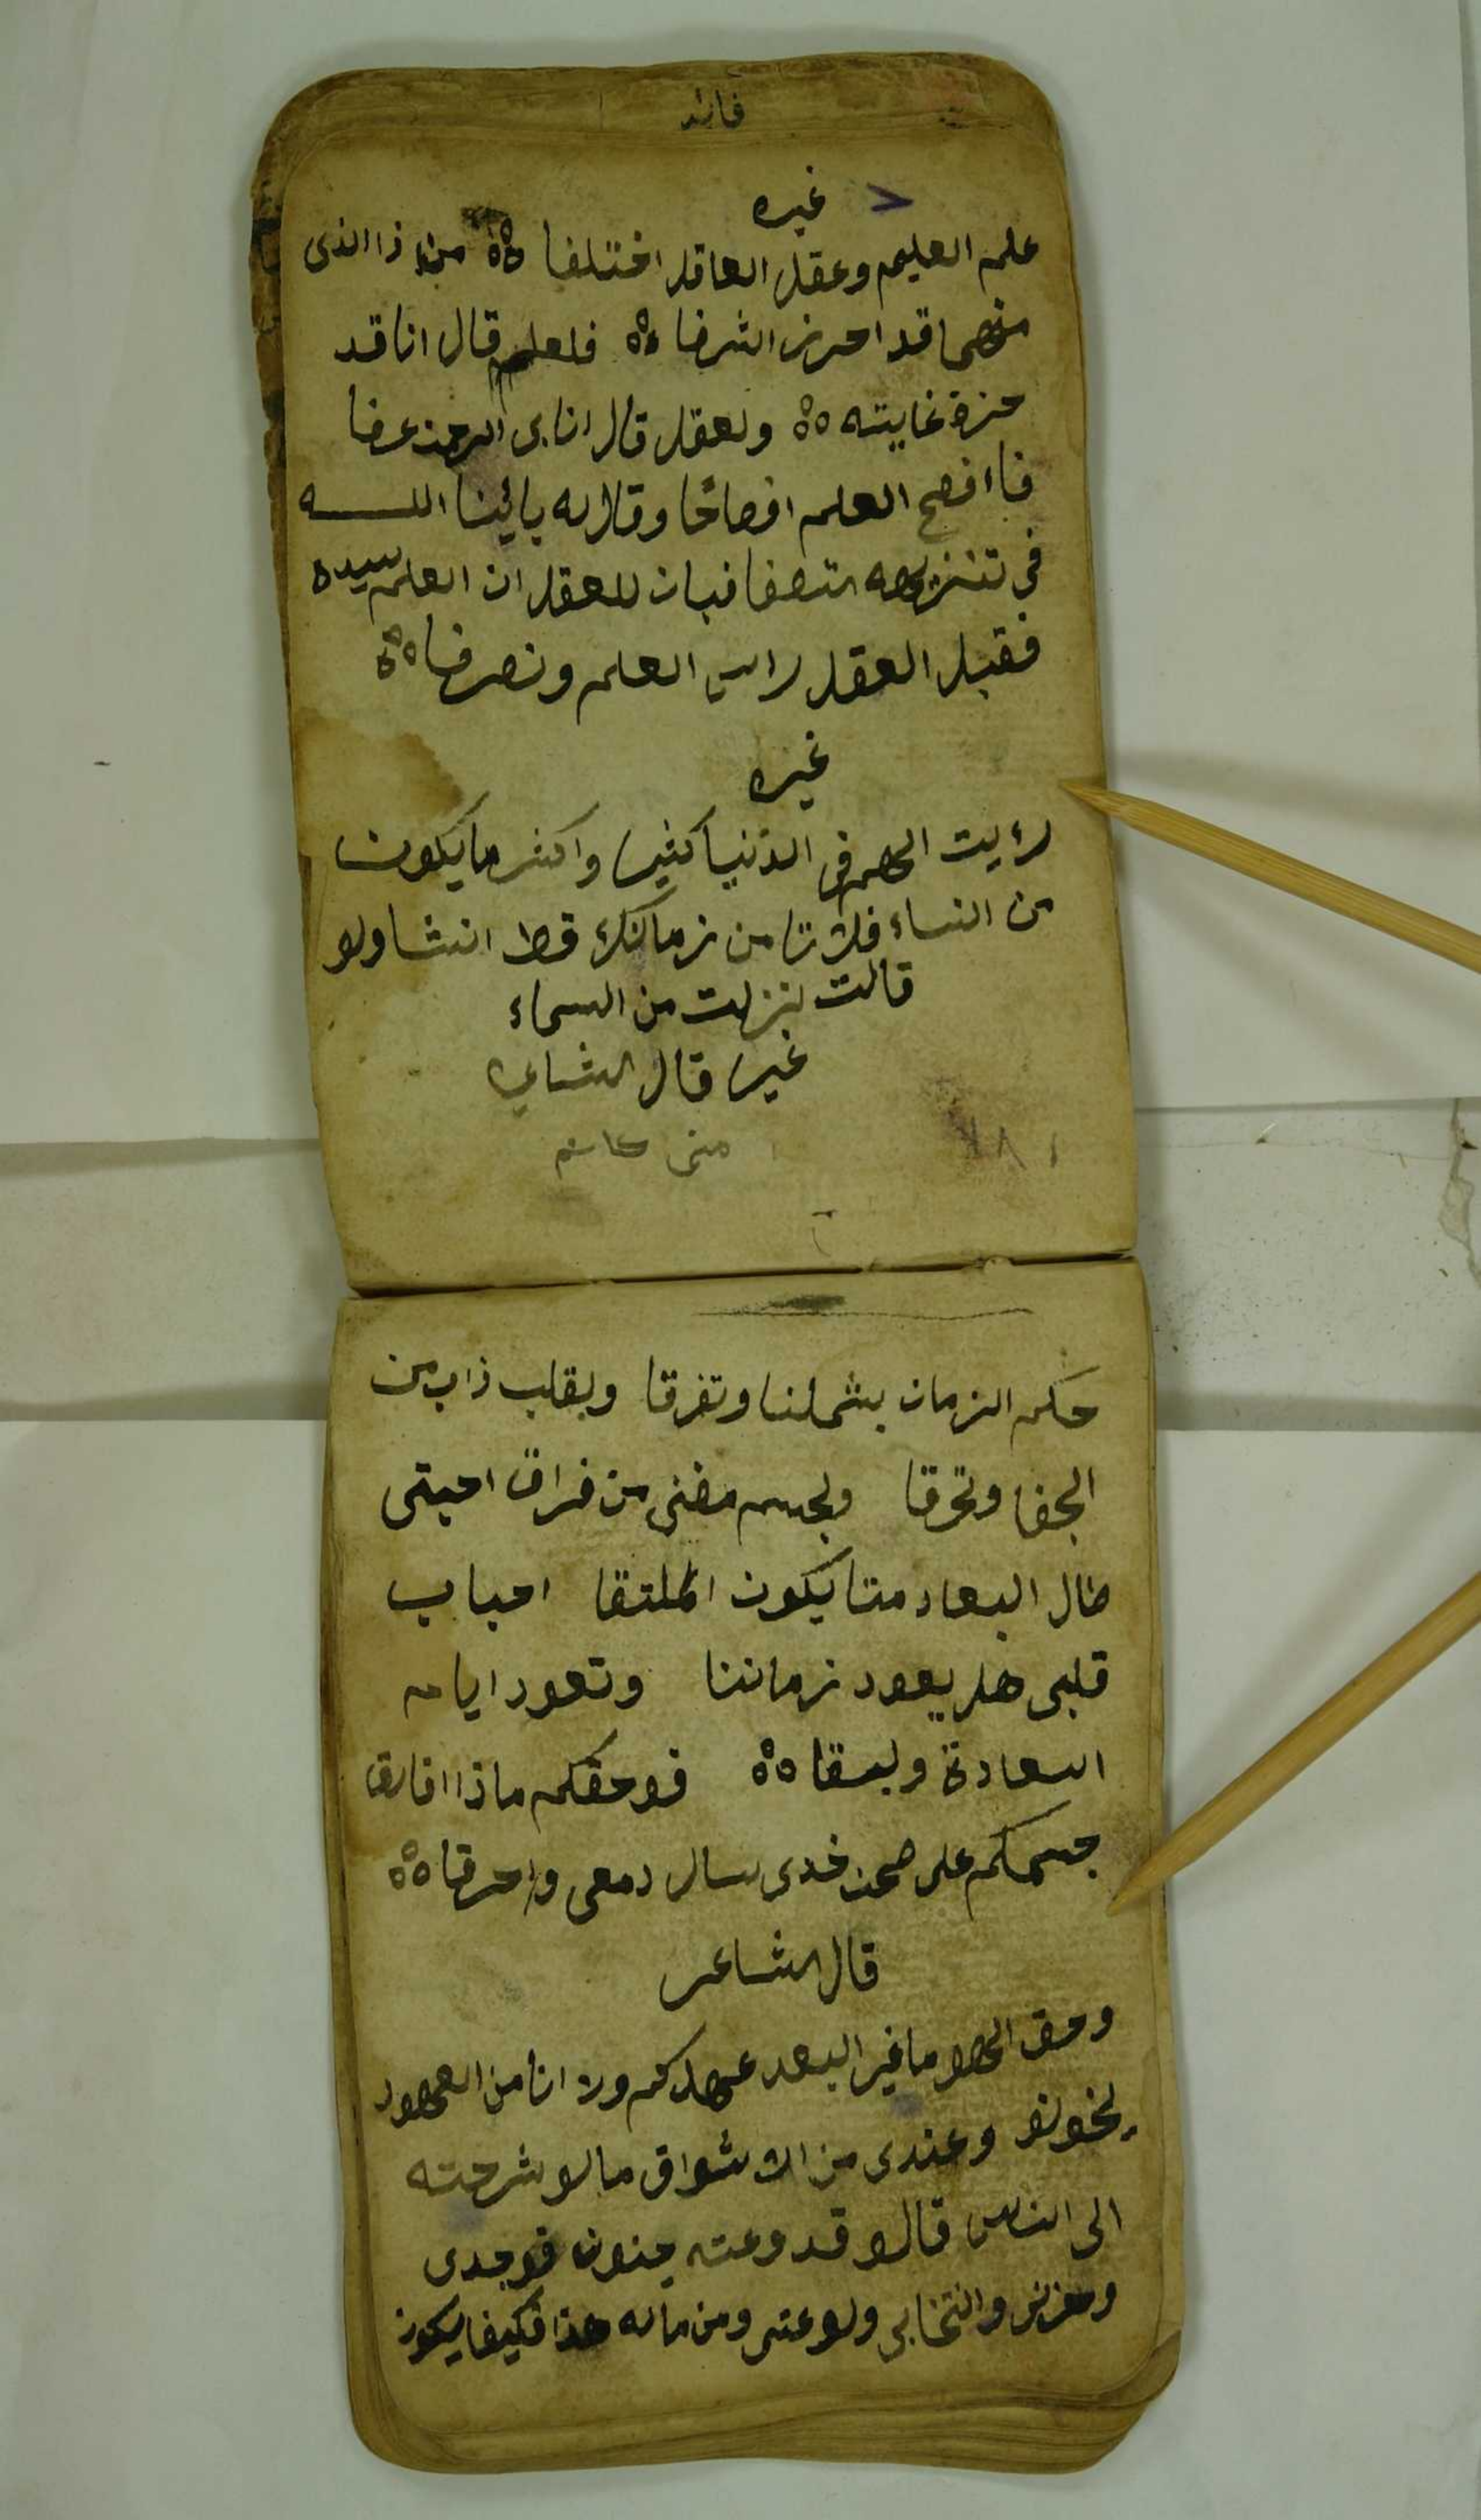 فائد
غيره
علم العليم وعقل العاقل اختلفا من ذا الذى
منهما قد احرز الشرفا فلعلم قال انا قد
حزة غايته ولعقل قال انا بى الرحمن عرفا
فاافصح العلم افصاحا وقال له بائينا اللـــه
فى تنزيله تصفا فبان للعقل ان العلم سيده
فقبل العقل راس العلم ونصرفا
غيره
رءيت الهم فى الدنيا كثيرا واكثر ما يكون
من النساء فلا تامن زمانك قط انشا ولو
قالت نزلت من السماء
غيرا قال الشاعر
منى
حكم الزمان بشملنا وتفرقا وبقلب ذاب من
الجفا وتحرقا ولجسم مضنى من فراق احبتى
طال البعاد متا يكون الملتقا احباب
قلبى هل يعود زماننا وتعود ايام
السعادة ولبقا فوحقكم ماذا افارق
جسمكم على صحن خدى سال دمعى واحرقا
قال الشاعر
وحق الهوى ما غير البعد عهدكم ولا انا من العهود
يخونو وعندى من الاشواق مالو شرحته
الى الناس قالو قد وعته جنون فوجدى
وحزنى وانتحابى ولوعتى ومن ماله هذا فكيفا يكون